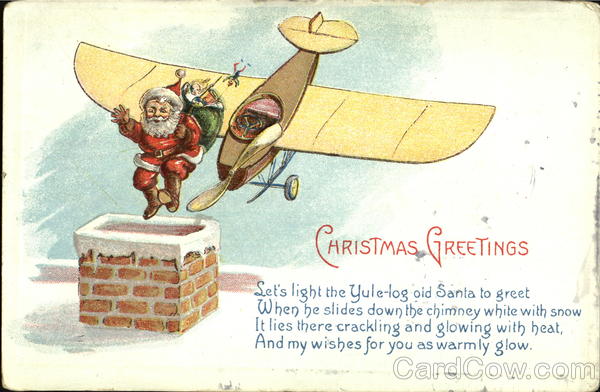 CHRISTMAS GREETINGS
Let's light the Yule-log old Santa to greet
When he slides down the chimney white with snow
It lies there crackling and glowing with heat,
And my wishes for you as warmly glow.
CardCow.com